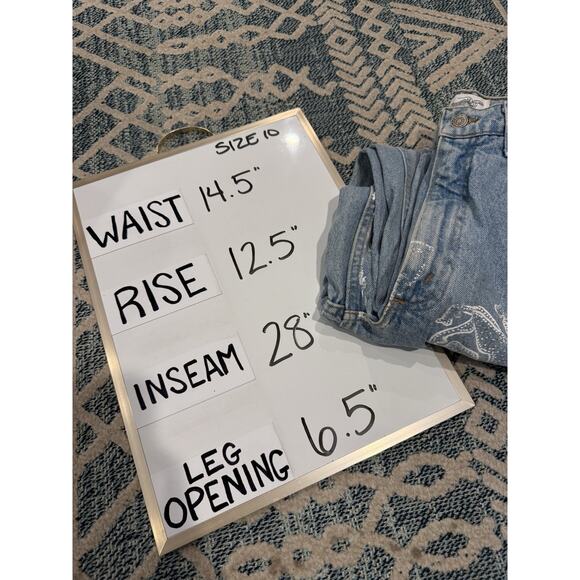 SIZE 10
WAIST 14.5"
RISE 12.5"
INSEAM 28"
LEG
OPENING 6.5"